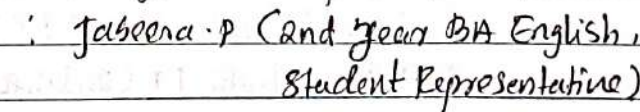 : Jabeena.P (2nd year BA English,
Student Representative)